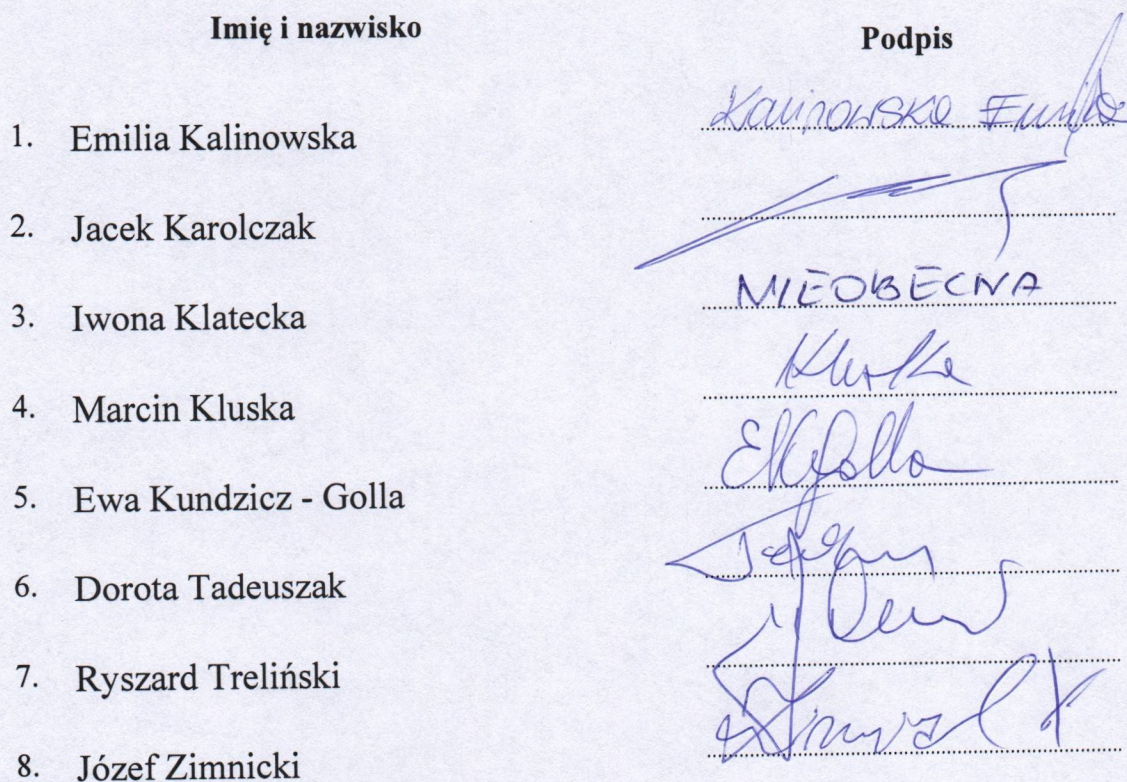 Imię i nazwisko Podpis
1. Emilia Kalinowska Kalinowska Emilia
2. Jacek Karolczak
3. Iwona Klatecka NIEOBECNA
4. Marcin Kluska Kluska
5. Ewa Kundzicz - Golla EKGolla
6. Dorota Tadeuszak
7. Ryszard Treliński
8. Józef Zimnicki